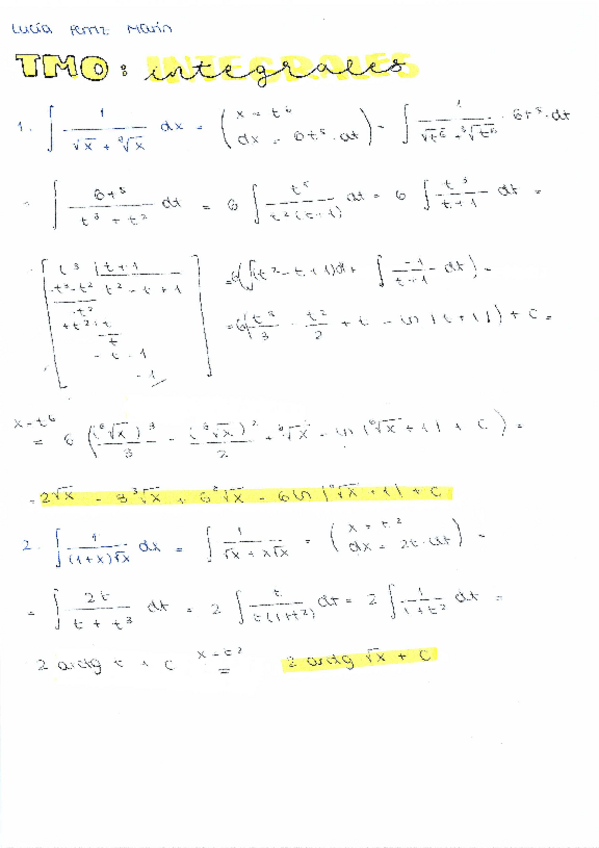 Lucía Pérez Marín
TMO: integrales
1. ∫ 1/(√x + ³√x) dx = (x = t⁶ dx = 6t⁵·dt) = ∫ 1/(√t⁶ + ³√t⁶) · 6t⁵·dt
= ∫ 6t⁵/(t³ + t²) dt = 6 ∫ t⁵/(t²(t+1)) dt = 6 ∫ t³/(t+1) dt =
[t³ | t+1
-t³-t² t² - t + 1
-t²
+t²+t
t
-t-1
-1] = 6(∫(t² - t + 1)dt + ∫ -1/(t+1) dt) =
= 6(t³/3 - t²/2 + t - ln|t+1|) + C =
x=t⁶
= 6 ((⁶√x)³/3 - (⁶√x)²/2 + ⁶√x - ln|⁶√x + 1| + C) =
= 2√x - 3 ³√x + 6 ⁶√x - 6 ln|⁶√x + 1| + C
2. ∫ 1/((1+x)√x) dx = ∫ 1/(√x + x√x) = (x = t² dx = 2t·dt) =
= ∫ 2t/(t + t³) dt = 2 ∫ t/(t(1+t²)) dt = 2 ∫ 1/(1+t²) dt =
2 arctg t + C x=t² = 2 arctg √x + C